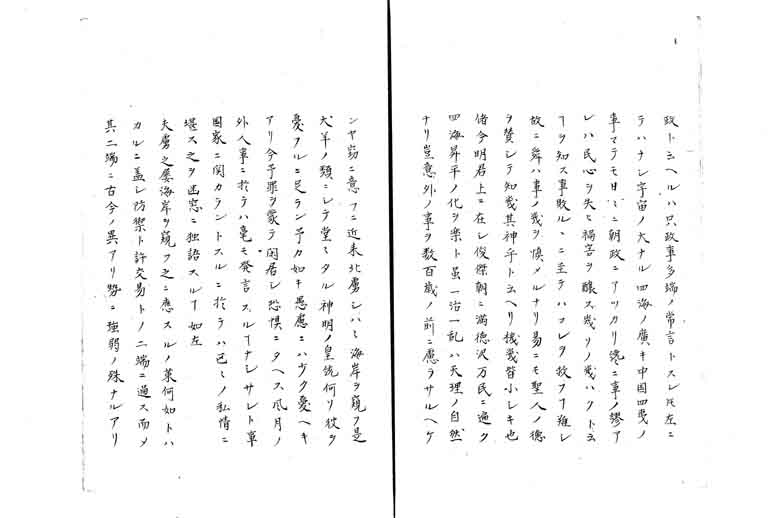 政ト云ヘルハ只政事多端ノ常言トスレ𪜈左ニ
ラハナシ宇宙ノ大ナル四海ノ廣キ中国四曵ノ
事マテモ日〻ニ朝政ニアツカリ纔ニ事ノ謬ア
レハ民心ヲ失ヒ禍害ヲ醸ス幾リノ幾ハクト云
ヿヲ知ス事敗ルヽニ至テハコレヲ救フヿ難シ
故ニ舜ハ事ノ幾ヲ慎メルナリ易ニモ聖人ノ德
ヲ賛シテ知幾其神乎ト云ヘリ機幾皆小シキ也
偖今明君上ニ在シ俊傑朝ニ満德沢万民ニ遍ク
四海昇平ノ化ヲ楽ト虽一治一乱ハ天理ノ自然
ナリ豈意外ノ事ヲ数百歳ノ前ニ慮ラサルヘケ
ンヤ窃ニ意フニ近来北虜シハ〻海岸ヲ窺フ是
犬羊ノ類ニシテ堂〻タル神明ノ皇統何ソ彼ヲ
憂フルニ足ラン予カ如キ愚慮ニハ少ク憂ヘキ
アリ今予罪ヲ蒙テ閑居シ恐惧ニタヘス風月ノ
外人事ニ於テハ毫モ発言スルヿナシサレト事
国家ニ関カラントスルニ於テハ已ミノ私情ニ
堪ス之ヲ幽窓ニ独語スルヿ如左
夫虜之屡海岸ヲ窺フ之ニ應スルノ策何如トハ
カルニ盖シ防禦ト許交易トノ二端ニ過ス而メ
其二端ニ古今ノ異アリ勢ニ強弱ノ殊ナルアリ